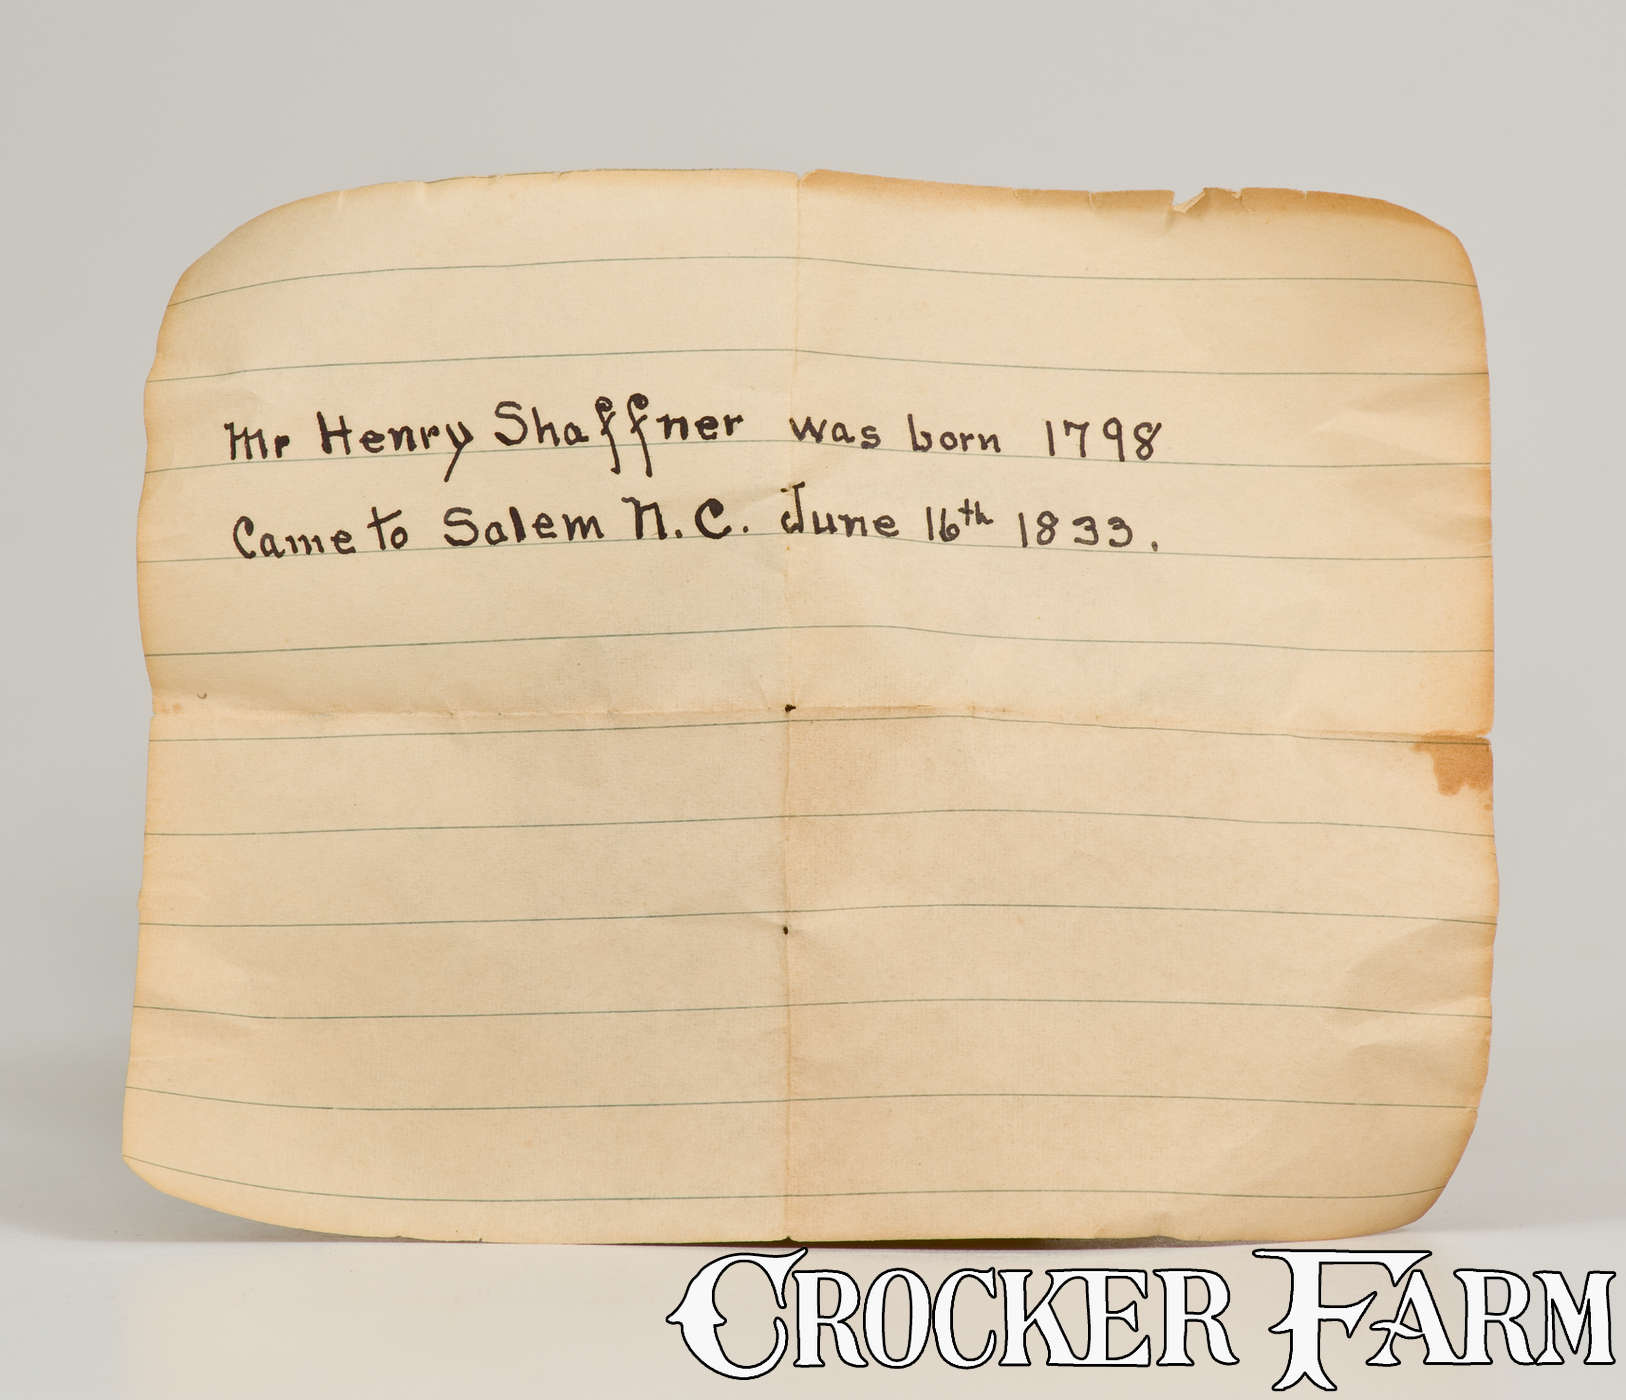 Mr Henry Shaffner was born 1798
Came to Salem N.C. June 16th 1833.
CROCKER FARM